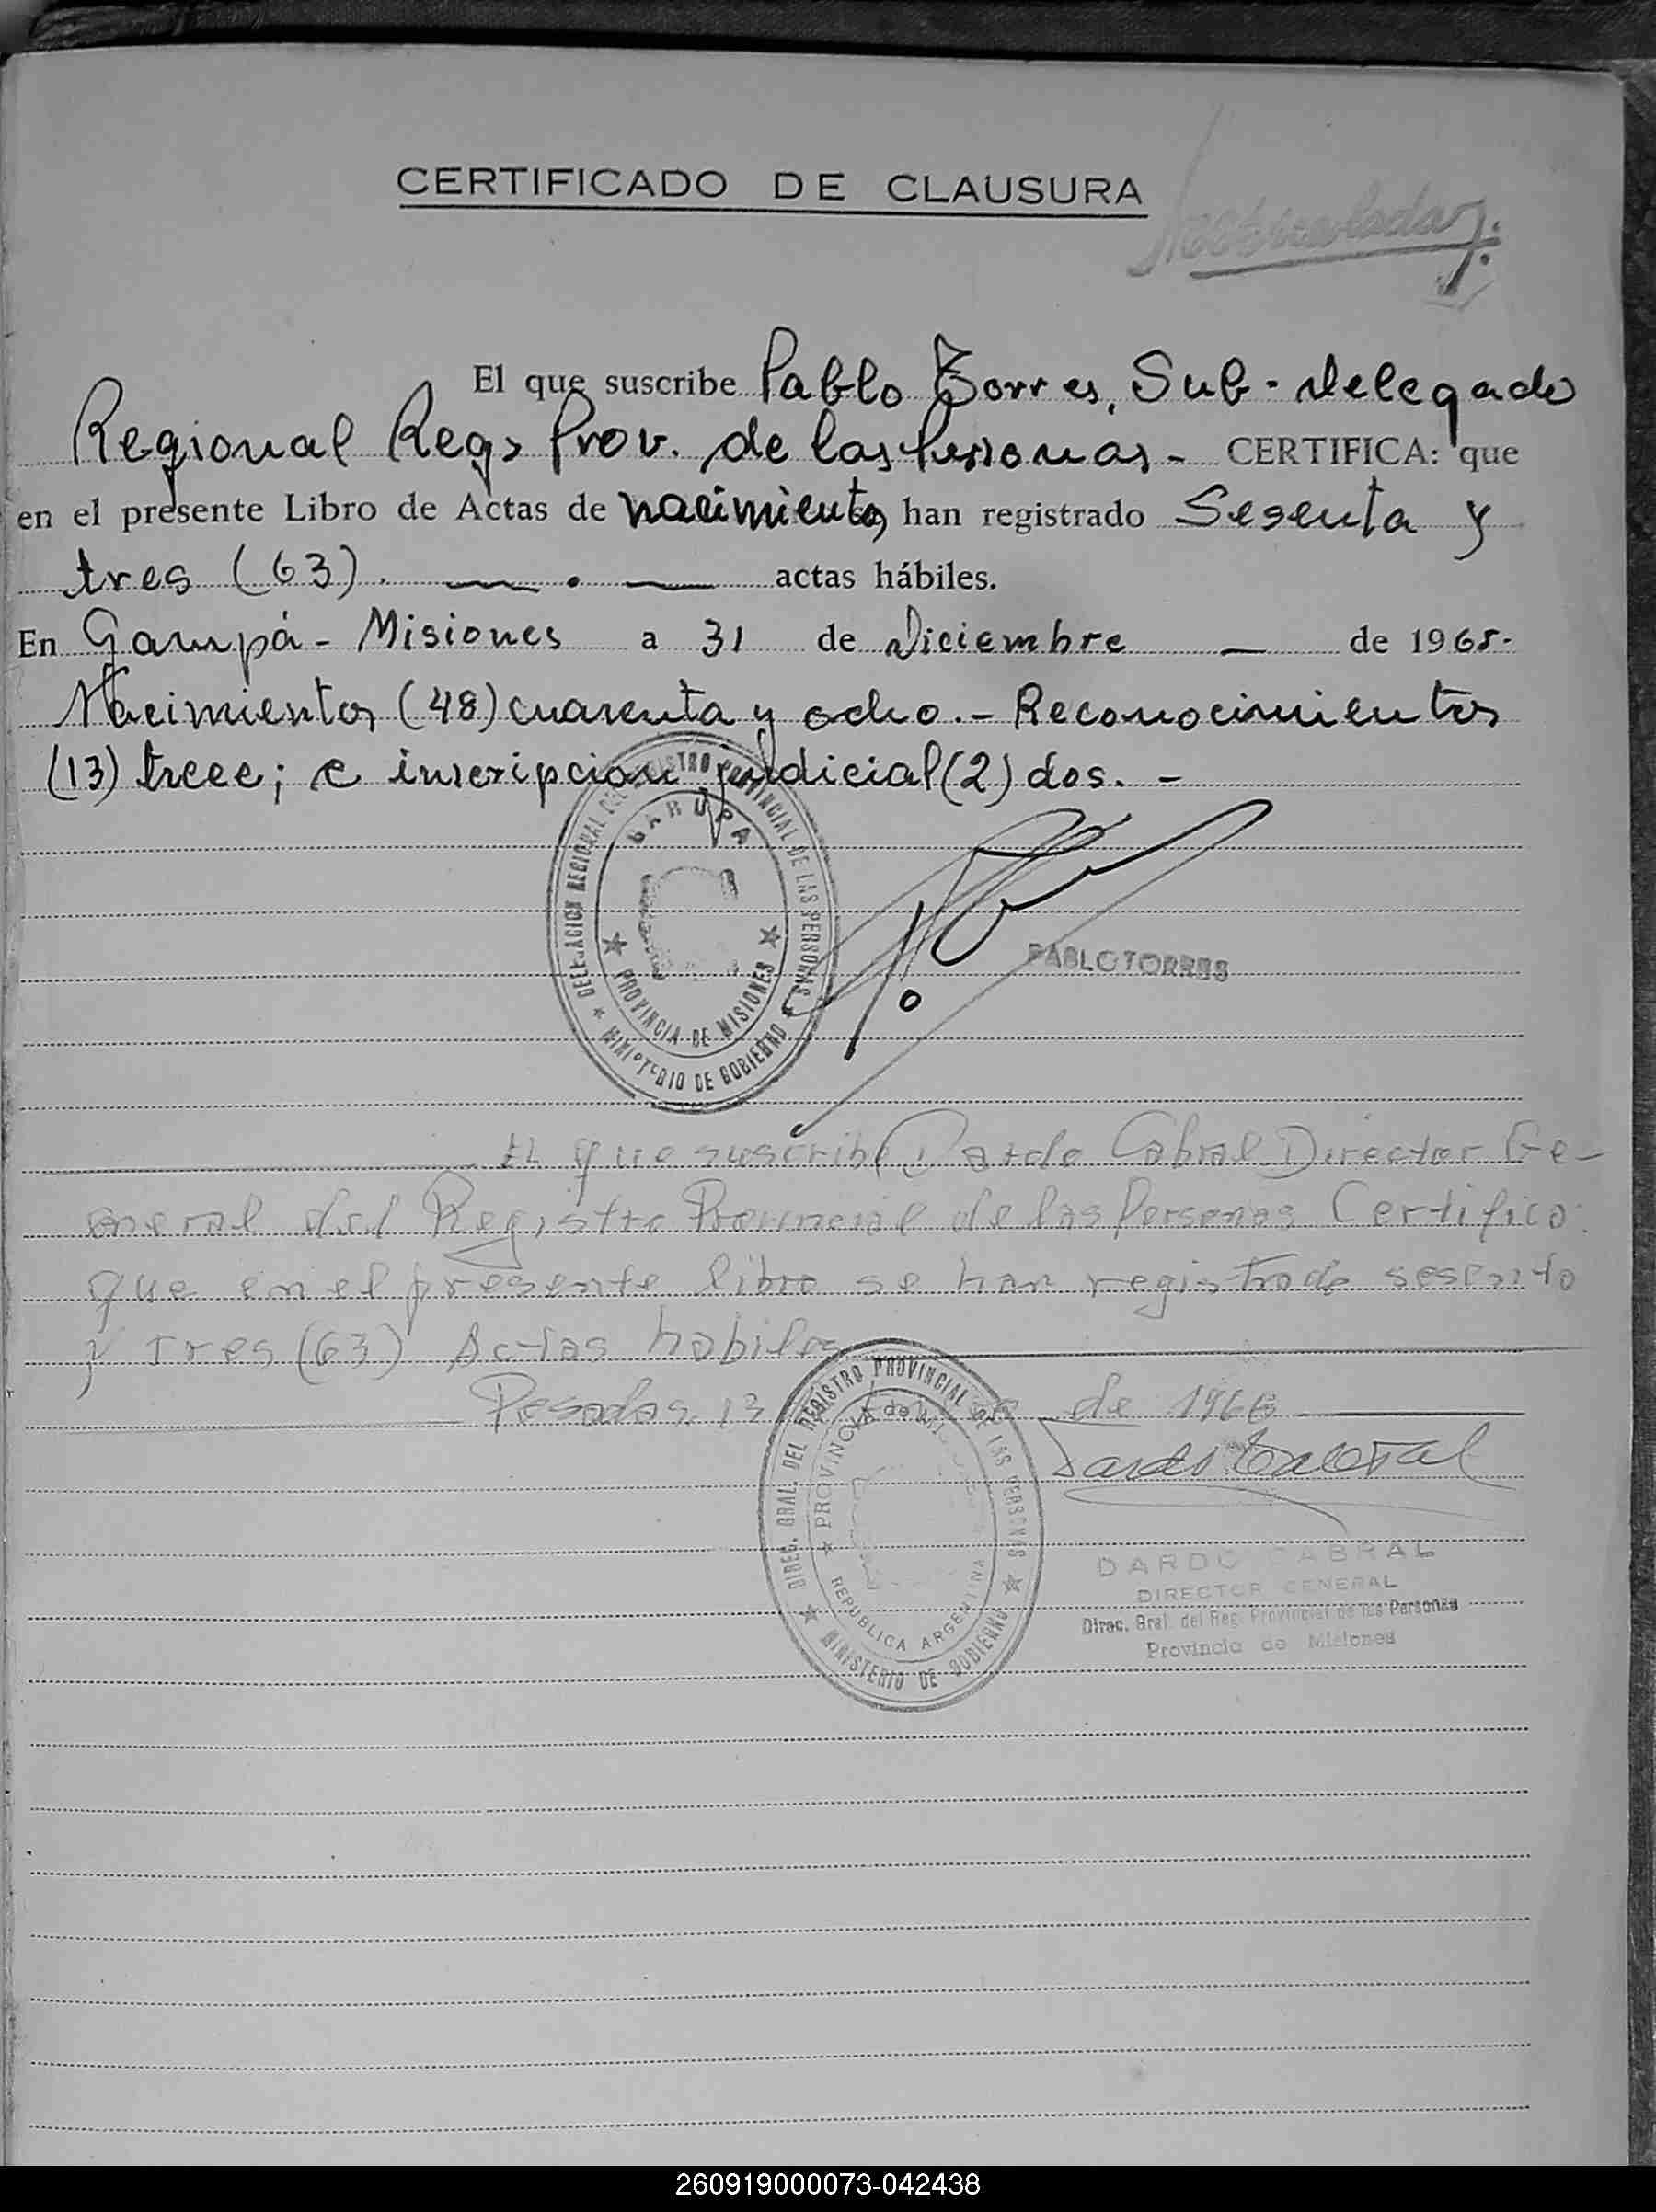 CERTIFICADO DE CLAUSURA
El que suscribe Pablo Torres, Sub-delegado
Regional Reg. Prov. de las Personas - CERTIFICA: que
en el presente Libro de Actas de nacimientos han registrado Sesenta y
tres (63). — . — actas hábiles.
En Garupá - Misiones a 31 de Diciembre — de 1965.
Nacimientos (48) cuarenta y ocho. - Reconocimientos
(13) trece; e inscripcion judicial (2) dos. -
DELEGACION REGIONAL DEL REGISTRO PROVINCIAL DE LAS PERSONAS
GARUPA
PROVINCIA DE MISIONES
MINISTERIO DE GOBIERNO
PABLO TORRES
El que suscribe Dardo Cabral Director Ge-
neral del Registro Provincial de las Personas Certifico:
que en el presente libro se han registrado sesenta
y Tres (63) Actas habiles
Posadas, 13 de 1966
DIREC. GRAL. DEL REGISTRO PROVINCIAL DE LAS PERSONAS
PROVINCIA de
REPUBLICA ARGENTINA
MINISTERIO DE GOBIERNO
Dardo Cabral
DARDO CABRAL
DIRECTOR GENERAL
Direc. Gral. del Reg. Provincial de las Personas
Provincia de Misiones
260919000073-042438